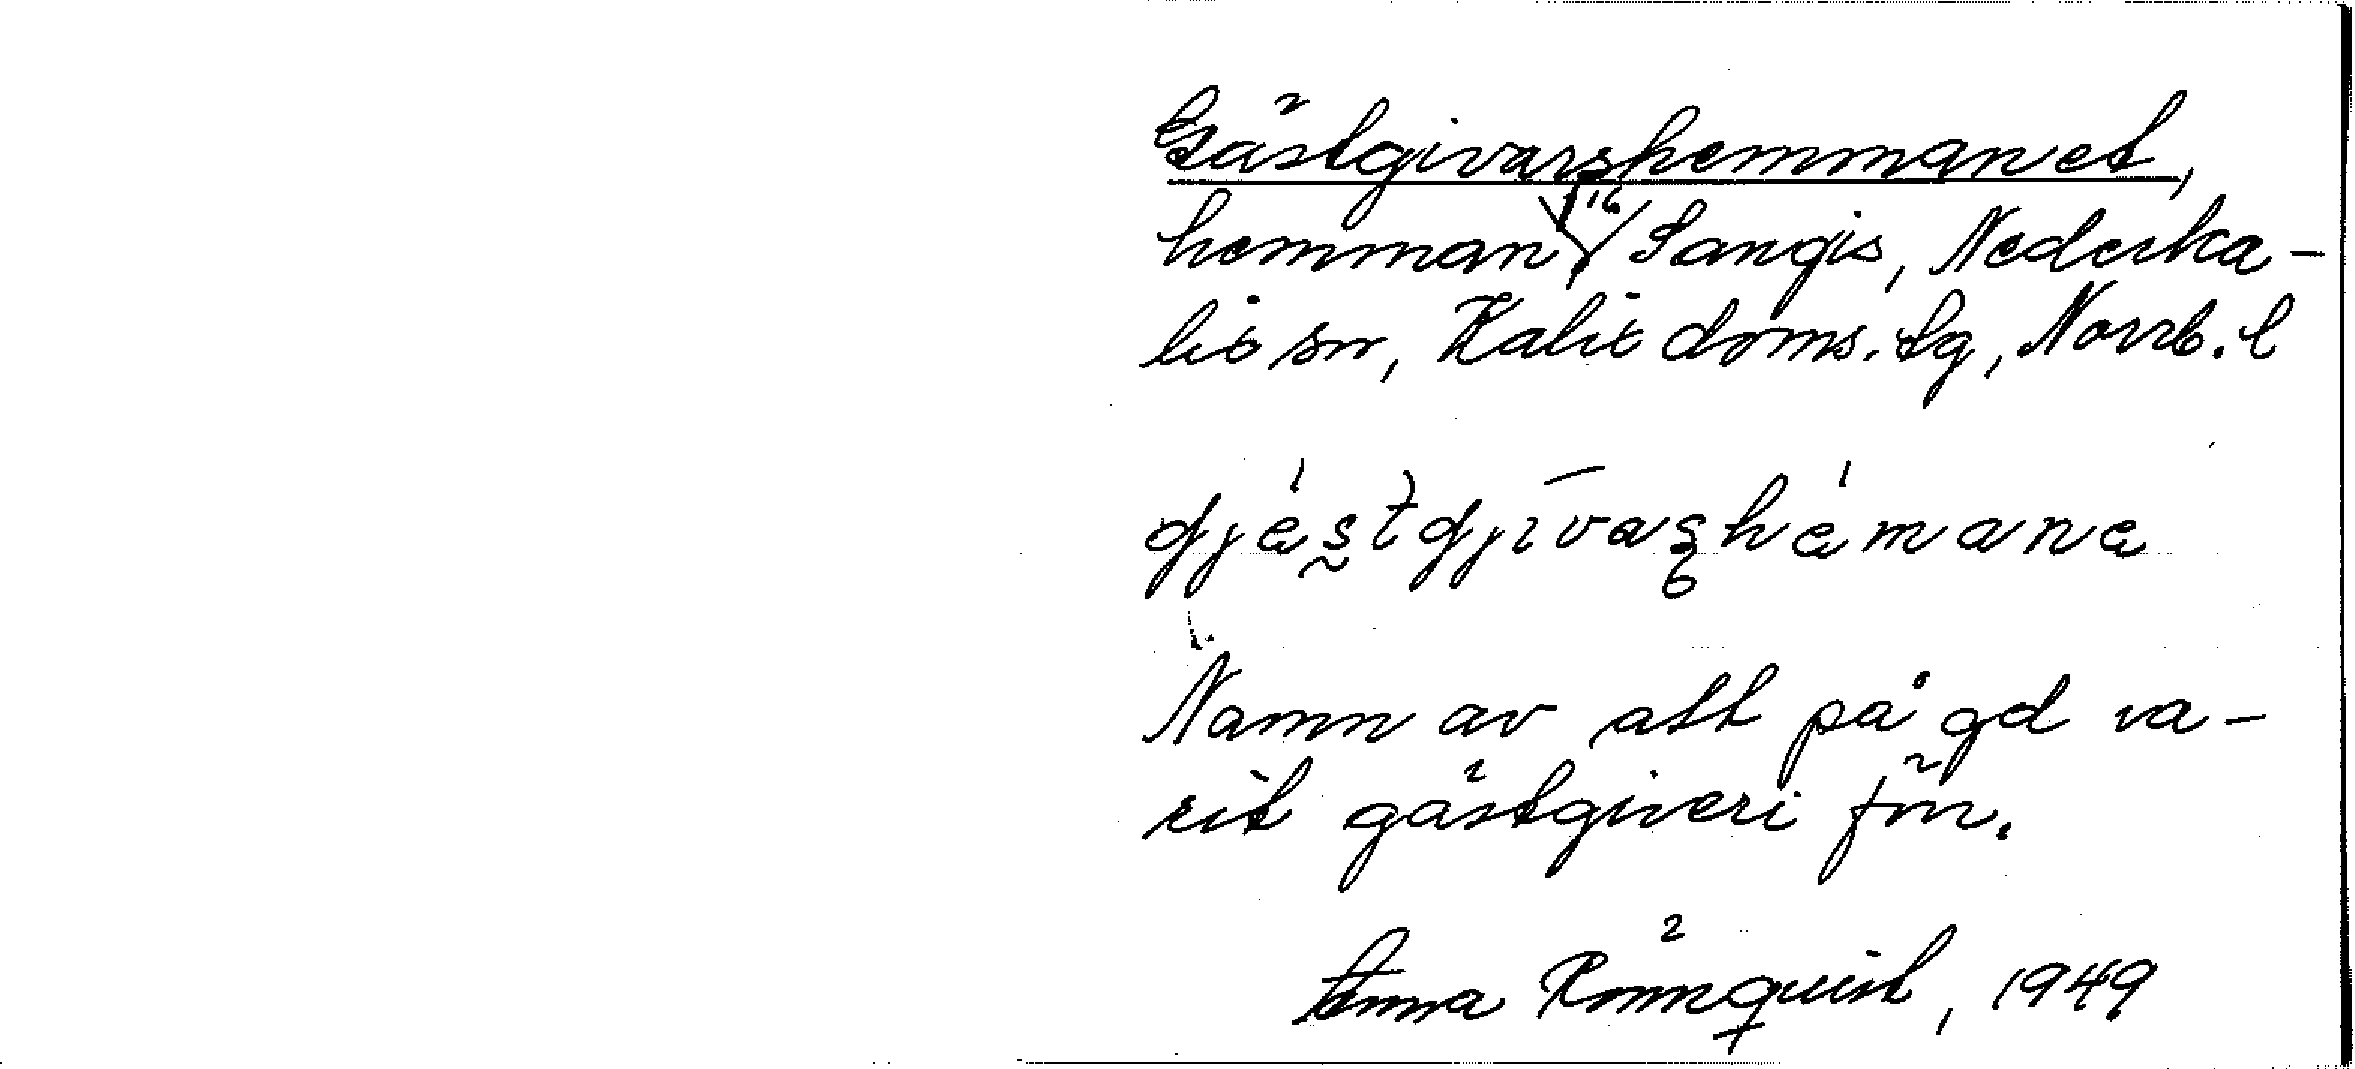 Gästgivarshemmanet,
hemman 16 i Sangis, Nederka-
lix sn, Kalix doms. tg, Norrb. l
Namn av att på gd va-
rit gästgiveri förr.
Anna Rönnquist, 1949